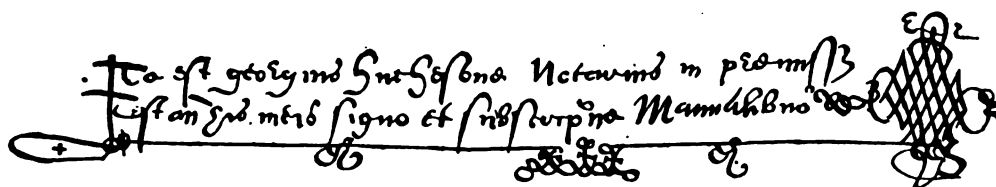 Ita est georgius huchesone Notarius in premissis
testan meis signo et subscripne Manualibus